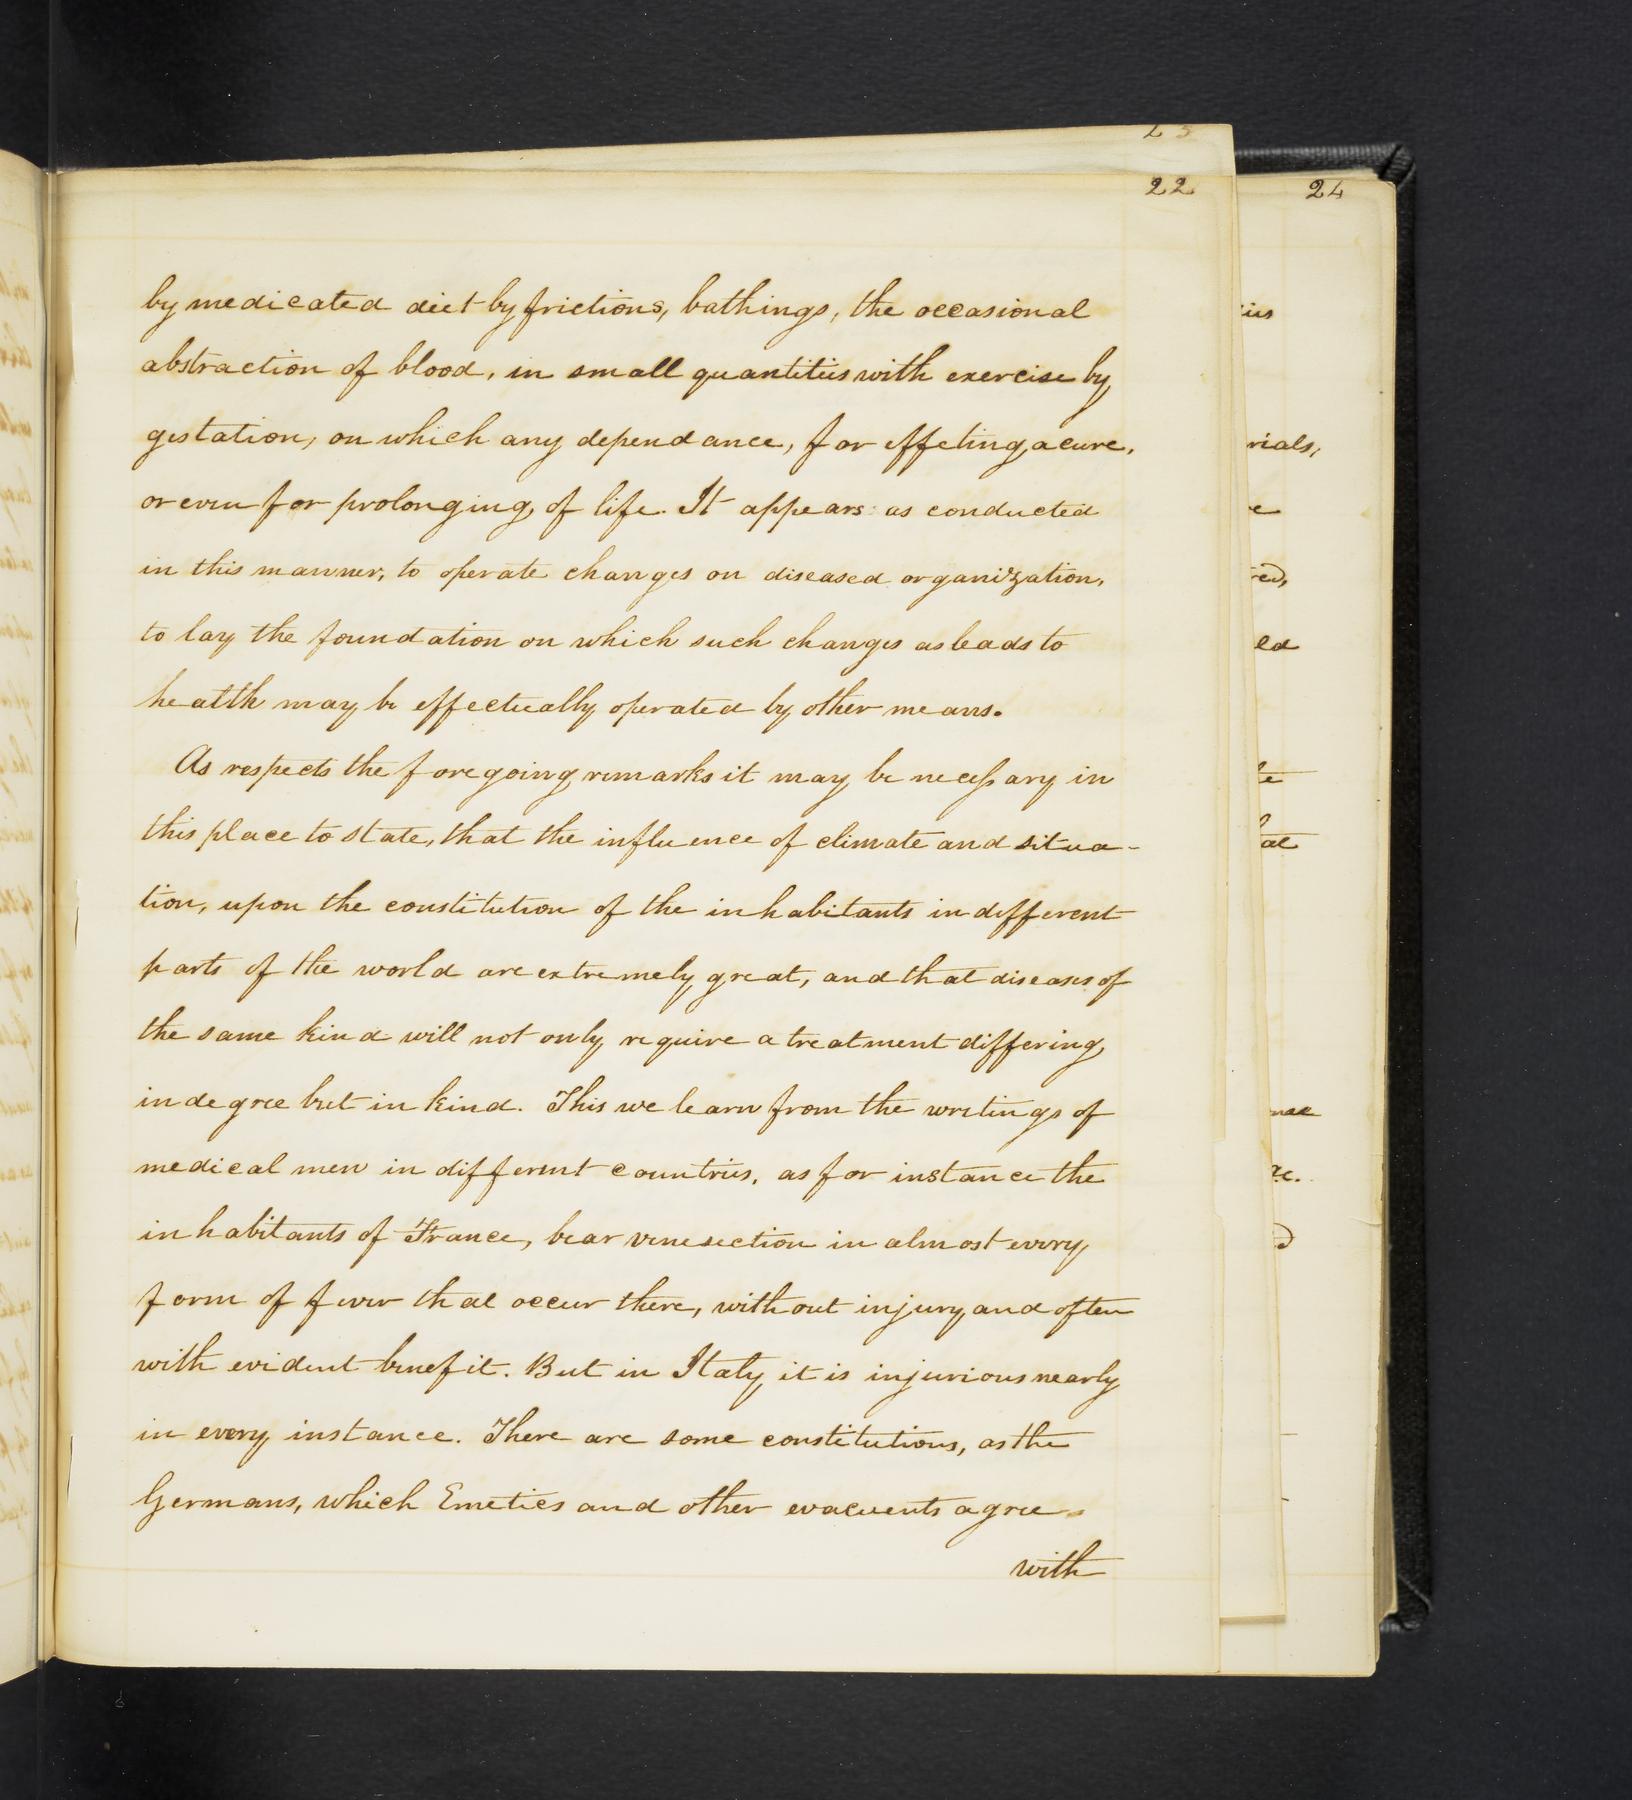 23
22
24
by medicated diet by frictions, bathings, the occasional
abstraction of blood, in small quantities with exercise by
gestation, on which any dependance, for effeting a cure,
or even for prolonging of life. It appears as conducted
in this manner, to operate changes on diseased organization,
to lay the foundation on which such changes as leads to
health may be effectually operated by other means.
As respects the foregoing remarks it may be necessary in
this place to state, that the influence of climate and situa-
tion, upon the constitution of the inhabitants in different
parts of the world are extremely great, and that diseases of
the same kind will not only require a treatment differing
in degree but in kind. This we learn from the writings of
medical men in different countries, as for instance the
inhabitants of France, bear venesection in almost every
form of fever that occur there, without injury and often
with evident benefit. But in Italy it is injurious nearly
in every instance. There are some constitutions, as the
Germans, which Emetics and other evacuents agree
with